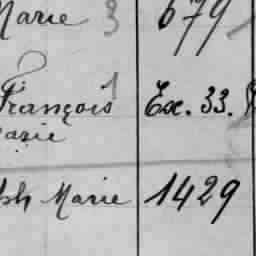 Marie 3 679
François 1 Ex. 33. 8
Marie
Marie 1429